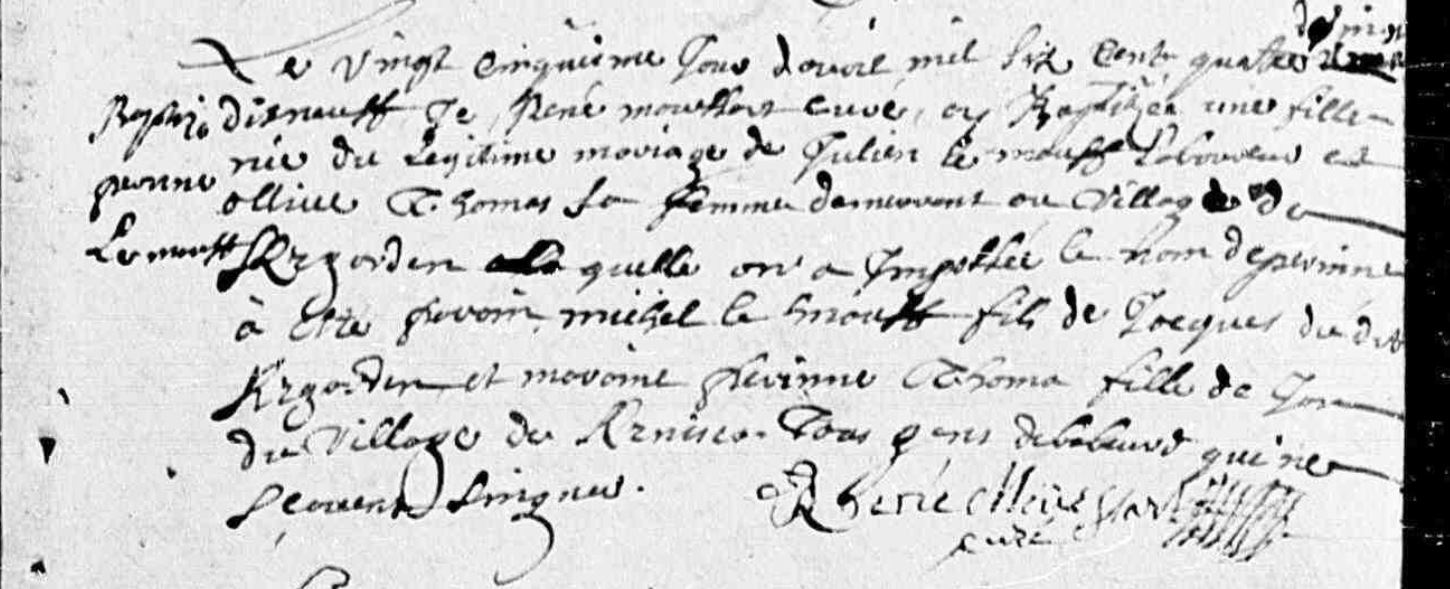 Le vingt cinquiesme Jour davril mil six cents quatre vingt
disneuff Je, René moussart curé, ay Baptizée une fille
née du Legitime mariage de Julien le mouff Laboureur et
ollive Thomas sa femme demeurant au village de
Krgorden a la quelle on a Imposée le nom de perinne
à esté parain michel le mouff fils de Jacques du dit
Krgorden et maraine perinne Thoma fille de Jan
du village de Tous gens de labeurs qui ne
scavent singner.
Rhené Moussart
curé
Baptize
perinne
Le mouff